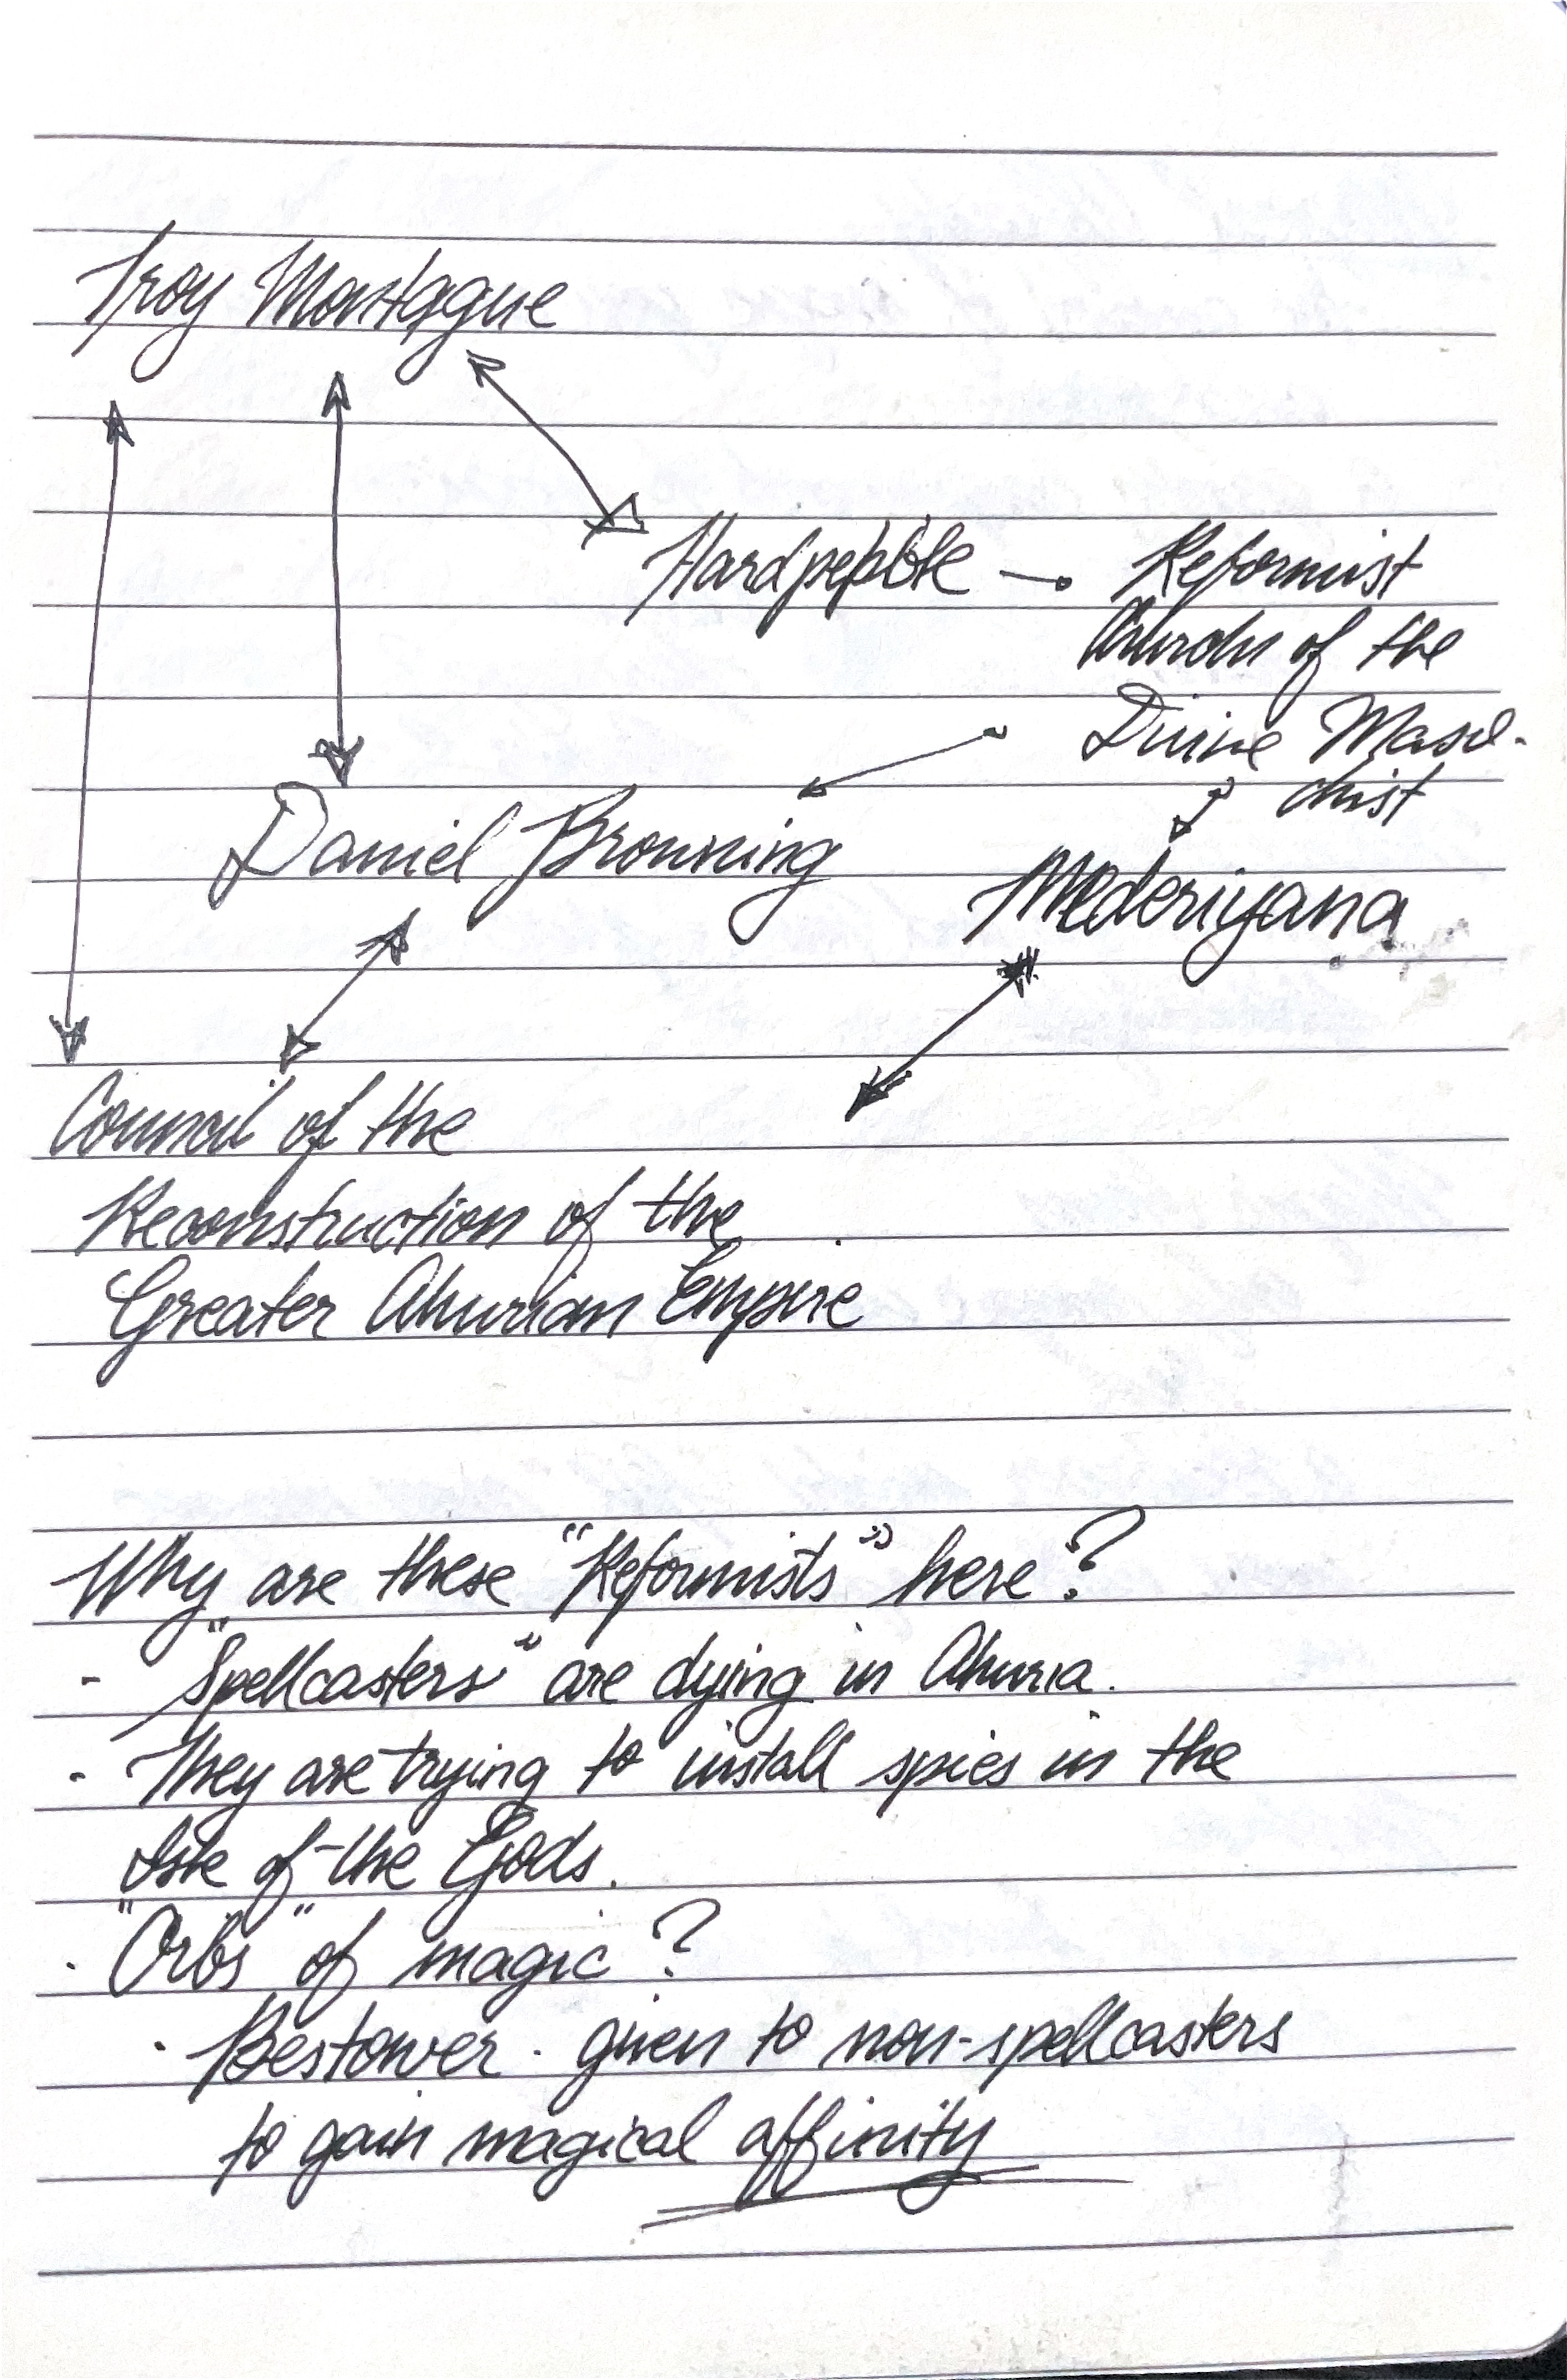 Troy Montague
Hardpebble — Reformist
Church of the
Divine Maso-
chist
Daniel Browning
Mederiyana
Council of the
Reconstruction of the
Greater Ahurian Empire
Why are these "Reformists" here?
- "Spellcasters" are dying in Ahuria.
- They are trying to install spies in the
Isle of the Gods.
· "Orbs" of magic?
· Bestower - given to non-spellcasters
to gain magical affinity